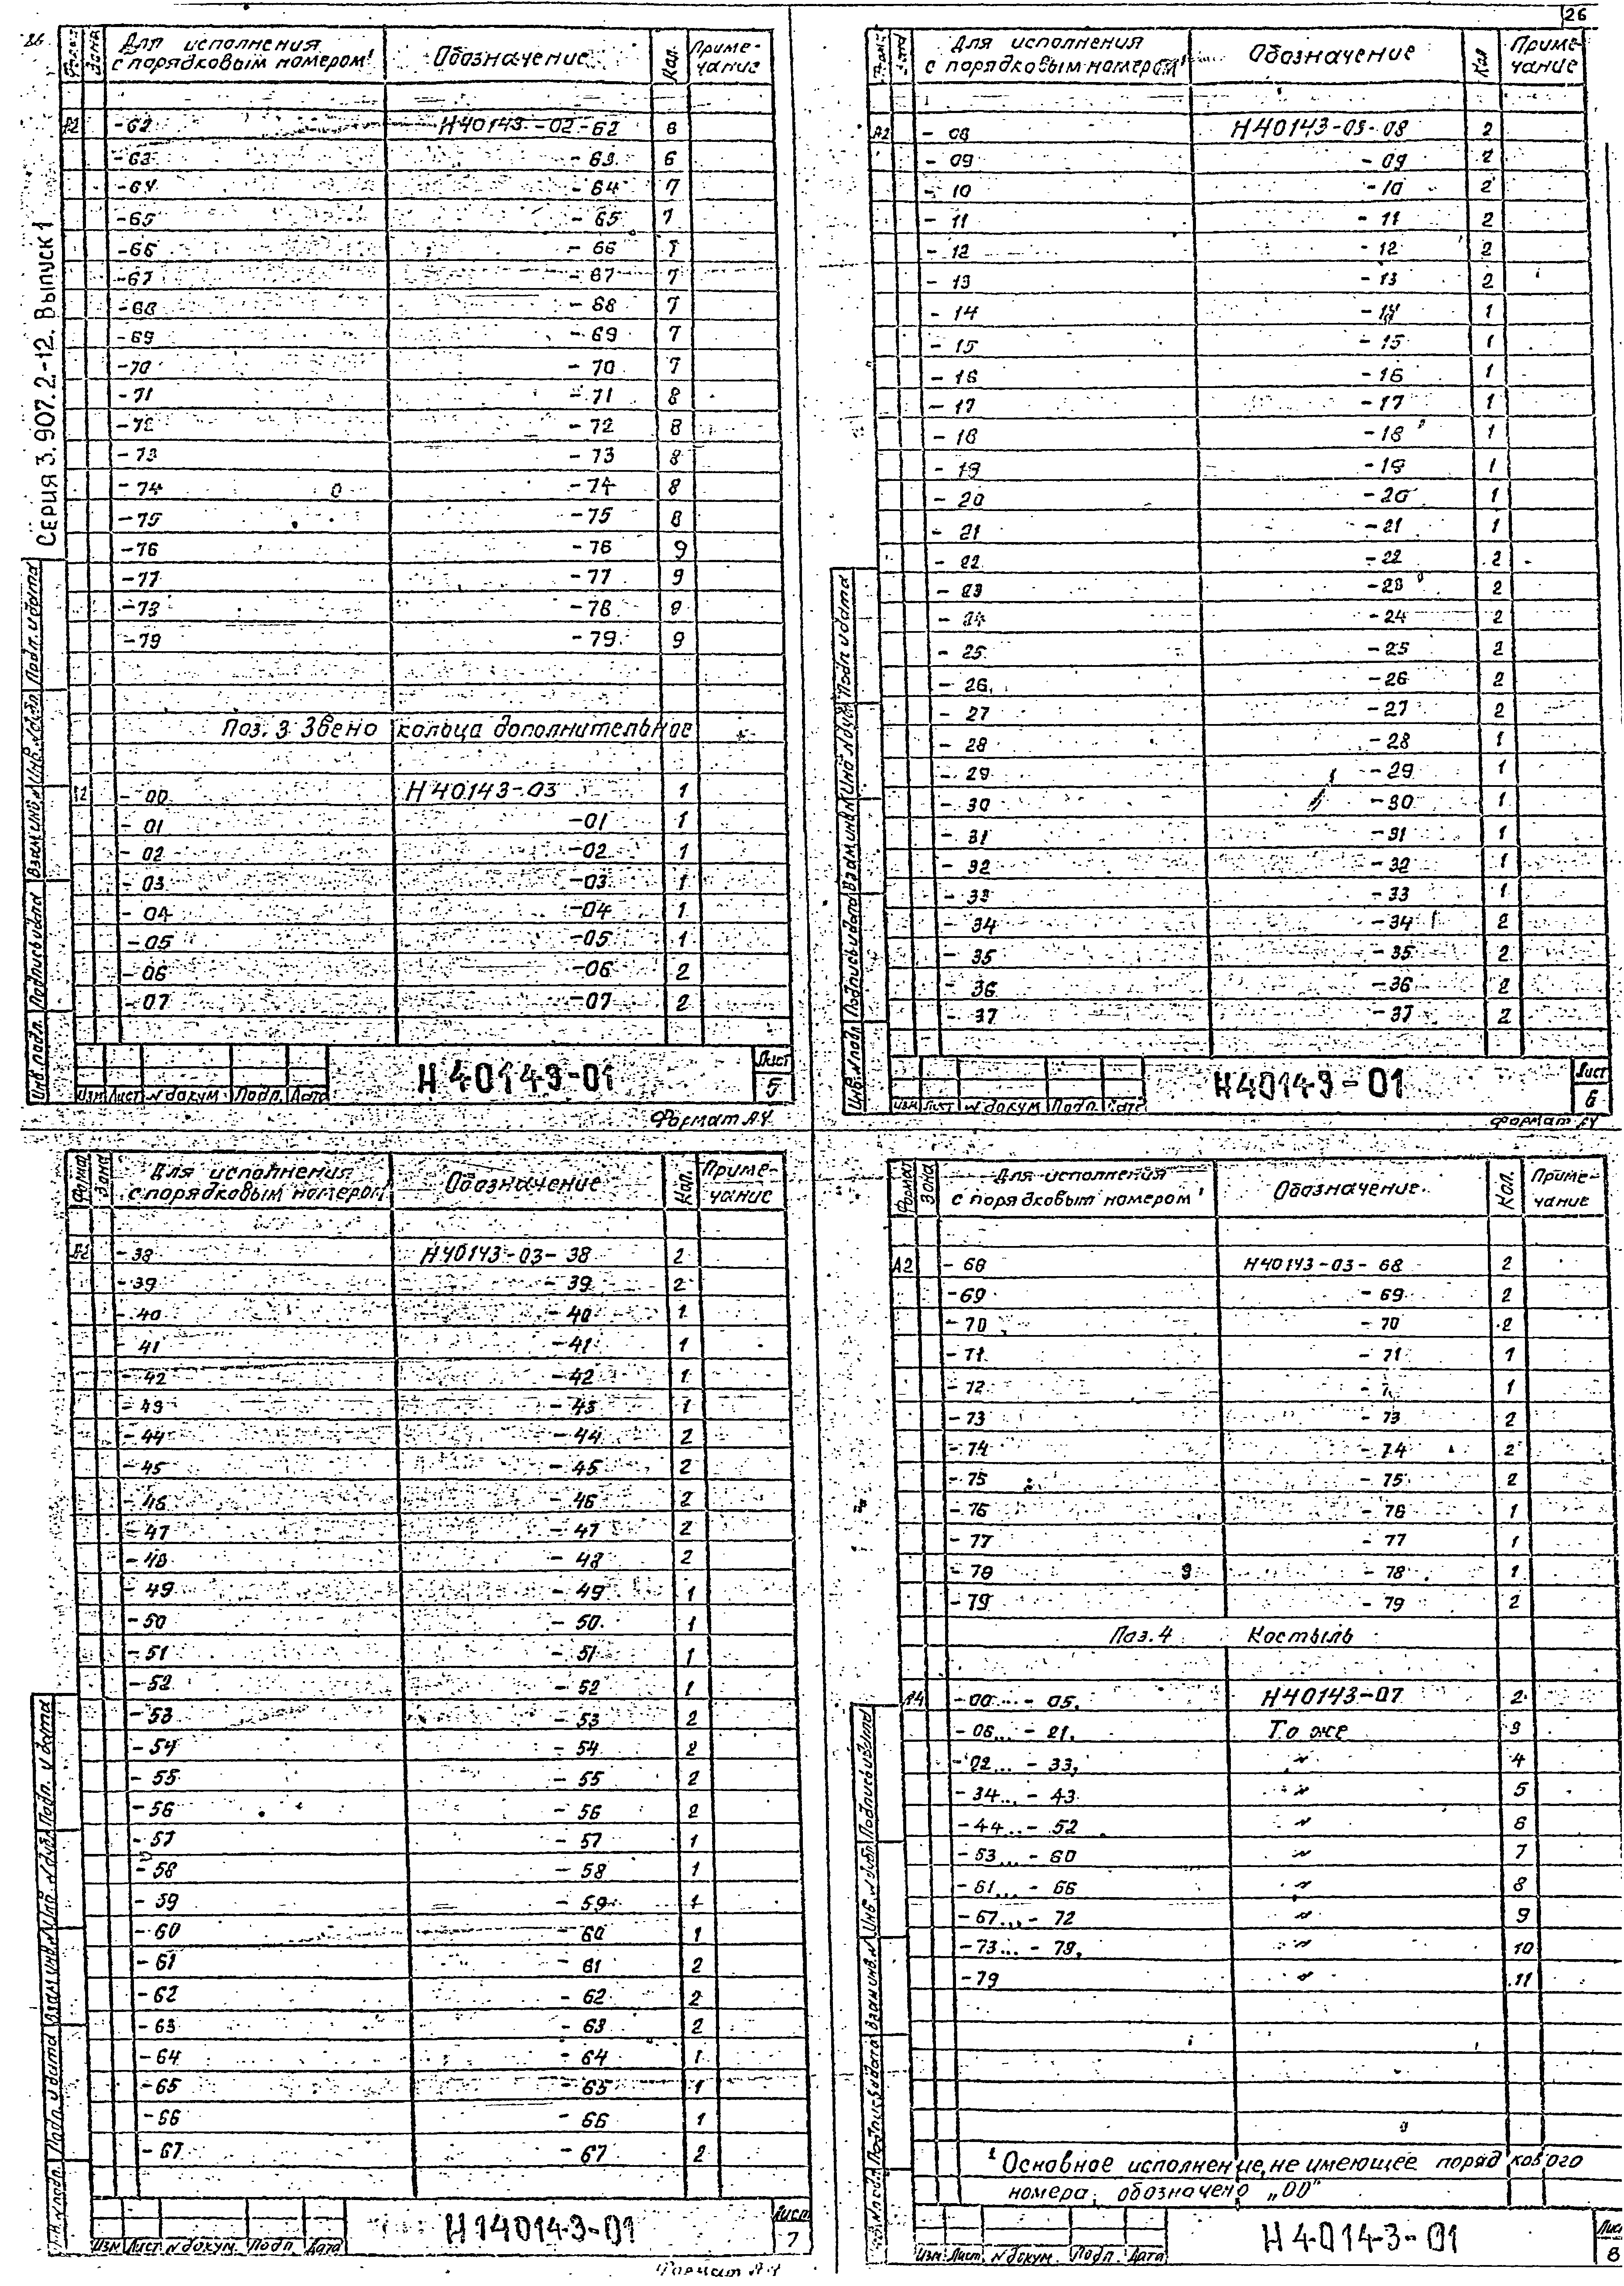 26
Серия 3.907.2-12. Выпуск 1
Для исполнения с порядковым номером¹ Обозначение Кол. Приме-чание
-62 Н40143-02-62 6
-63 -63 6
-64 -64 7
-65 -65 7
-66 -66 7
-67 -67 7
-68 -68 7
-69 -69 7
-70 -70 7
-71 -71 8
-72 -72 8
-73 -73 8
-74 -74 8
-75 -75 8
-76 -76 9
-77 -77 9
-78 -78 9
-79 -79 9
Поз. 3 Звено кольца дополнительное
-00 Н40143-03 1
-01 -01 1
-02 -02 1
-03 -03 1
-04 -04 1
-05 -05 1
-06 -06 2
-07 -07 2
Изм Лист N докум. Подп. Дата Н40143-01 Лист 5
Формат А4
Для исполнения с порядковым номером¹ Обозначение Кол Приме-чание
А2 -08 Н40143-03-08 2
-09 -09 2
-10 -10 2
-11 -11 2
-12 -12 2
-13 -13 2
-14 -14 1
-15 -15 1
-16 -16 1
-17 -17 1
-18 -18 1
-19 -19 1
-20 -20 1
-21 -21 1
-22 -22 2
-23 -23 2
-24 -24 2
-25 -25 2
-26 -26 2
-27 -27 2
-28 -28 1
-29 -29 1
-30 -30 1
-31 -31 1
-32 -32 1
-33 -33 1
-34 -34 2
-35 -35 2
-36 -36 2
-37 -37 2
Изм Лист N докум Подп. Дата Н40143-01 Лист 6
Формат А4
Формат Зона Для исполнения с порядковым номером¹ Обозначение Кол. Приме-чание
А2 -38 Н40143-03-38 2
-39 -39 2
-40 -40 1
-41 -41 1
-42 -42 1
-43 -43 1
-44 -44 2
-45 -45 2
-46 -46 2
-47 -47 2
-48 -48 2
-49 -49 1
-50 -50 1
-51 -51 1
-52 -52 1
-53 -53 2
-54 -54 2
-55 -55 2
-56 -56 2
-57 -57 1
-58 -58 1
-59 -59 1
-60 -60 1
-61 -61 2
-62 -62 2
-63 -63 2
-64 -64 1
-65 -65 1
-66 -66 1
-67 -67 2
Изм Лист N докум. Подп. Дата Н140143-01 Лист 7
Формат Зона Для исполнения с порядковым номером¹ Обозначение Кол. Приме-чание
А2 -68 Н40143-03-68 2
-69 -69 2
-70 -70 2
-71 -71 1
-72 -7 1
-73 -73 2
-74 -74 2
-75 -75 2
-76 -76 1
-77 -77 1
-78 -78 1
-79 -79 2
Поз. 4 Костыль
А4 -00...-05. Н40143-07 2
-06...-21. То же 3
-02...-33. " 4
-34...-43 " 5
-44...-52 " 6
-53...-60 " 7
-61...-66 " 8
-67...-72 " 9
-73...-79. " 10
-79 " 11
¹ Основное исполнение, не имеющее порядкового
номера, обозначено „00"
Изм Лист N докум. Подп. Дата Н40143-01 8